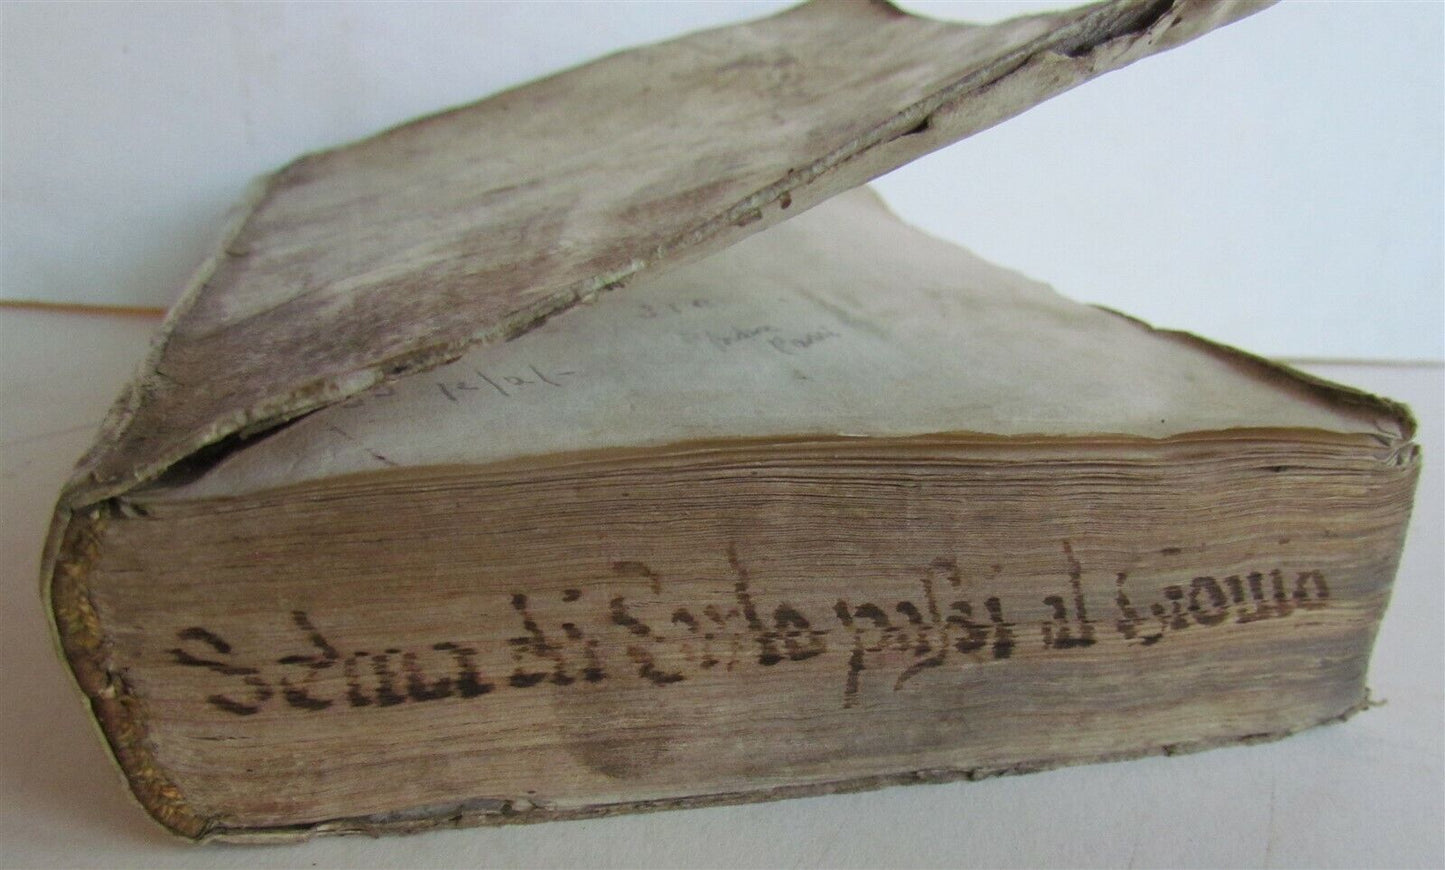 Selua di Carlo passi al Giouio